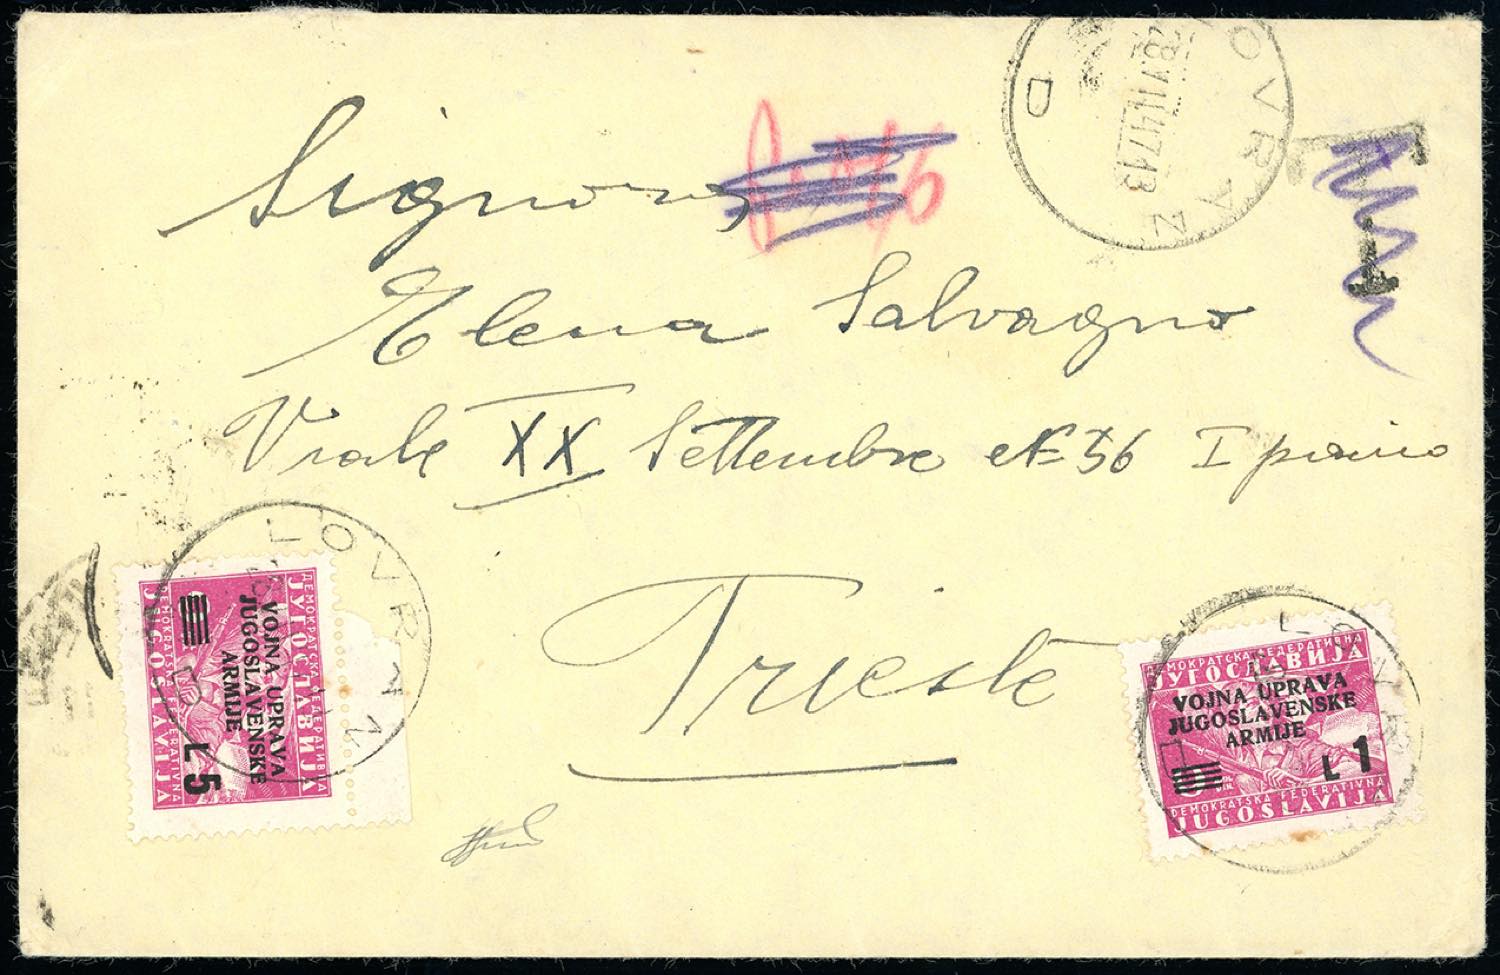 LOVRAN
28 VII 47 13
D
T
Signora
Elena Salvagno
Viale XX Settembre No 36 I piano
Trieste
LOVRAN
ДЕМОКРАТСКА ФЕДЕРАТИВНА
ЈУГОСЛАВИЈА
VOJNA UPRAVA
JUGOSLAVENSKE
ARMIJE
L 5
DEMOKRATSKA FEDERATIVNA
JUGOSLAVIJA
LOVRAN
ДЕМОКРАТСКА ФЕДЕРАТИВНА
ЈУГОСЛАВИЈА
VOJNA UPRAVA
JUGOSLAVENSKE
ARMIJE
L 1
DEMOKRATSKA FEDERATIVNA
JUGOSLAVIJA